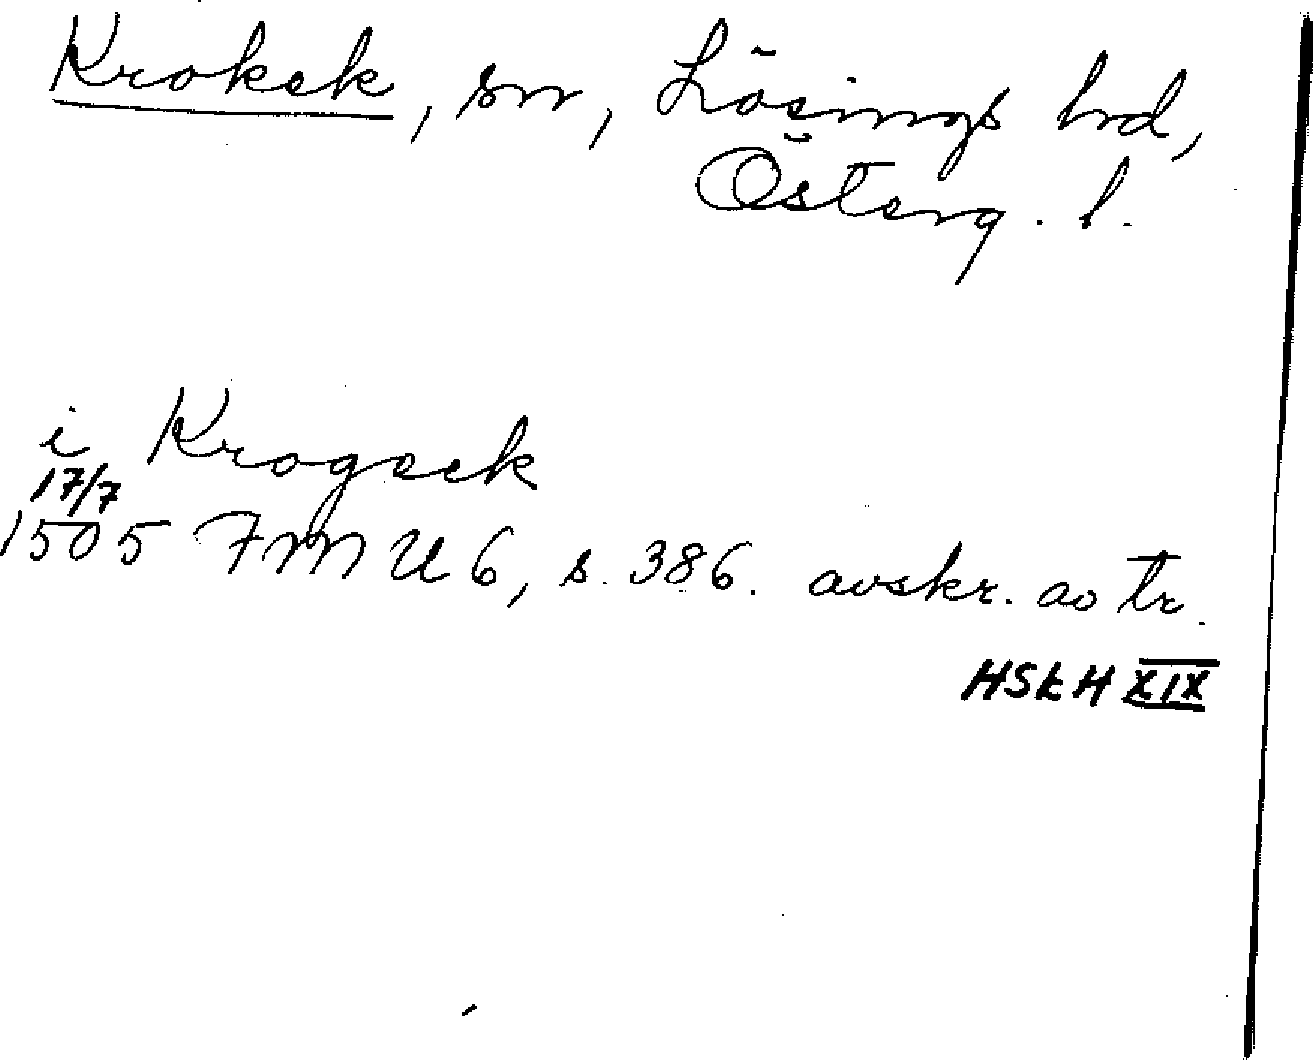 Krokek, sn, Lösings hrd,
Österg. l.
i Krogseek
17/7
1505 FMU 6, s. 386. avskr. av tr.
HSkH XIX